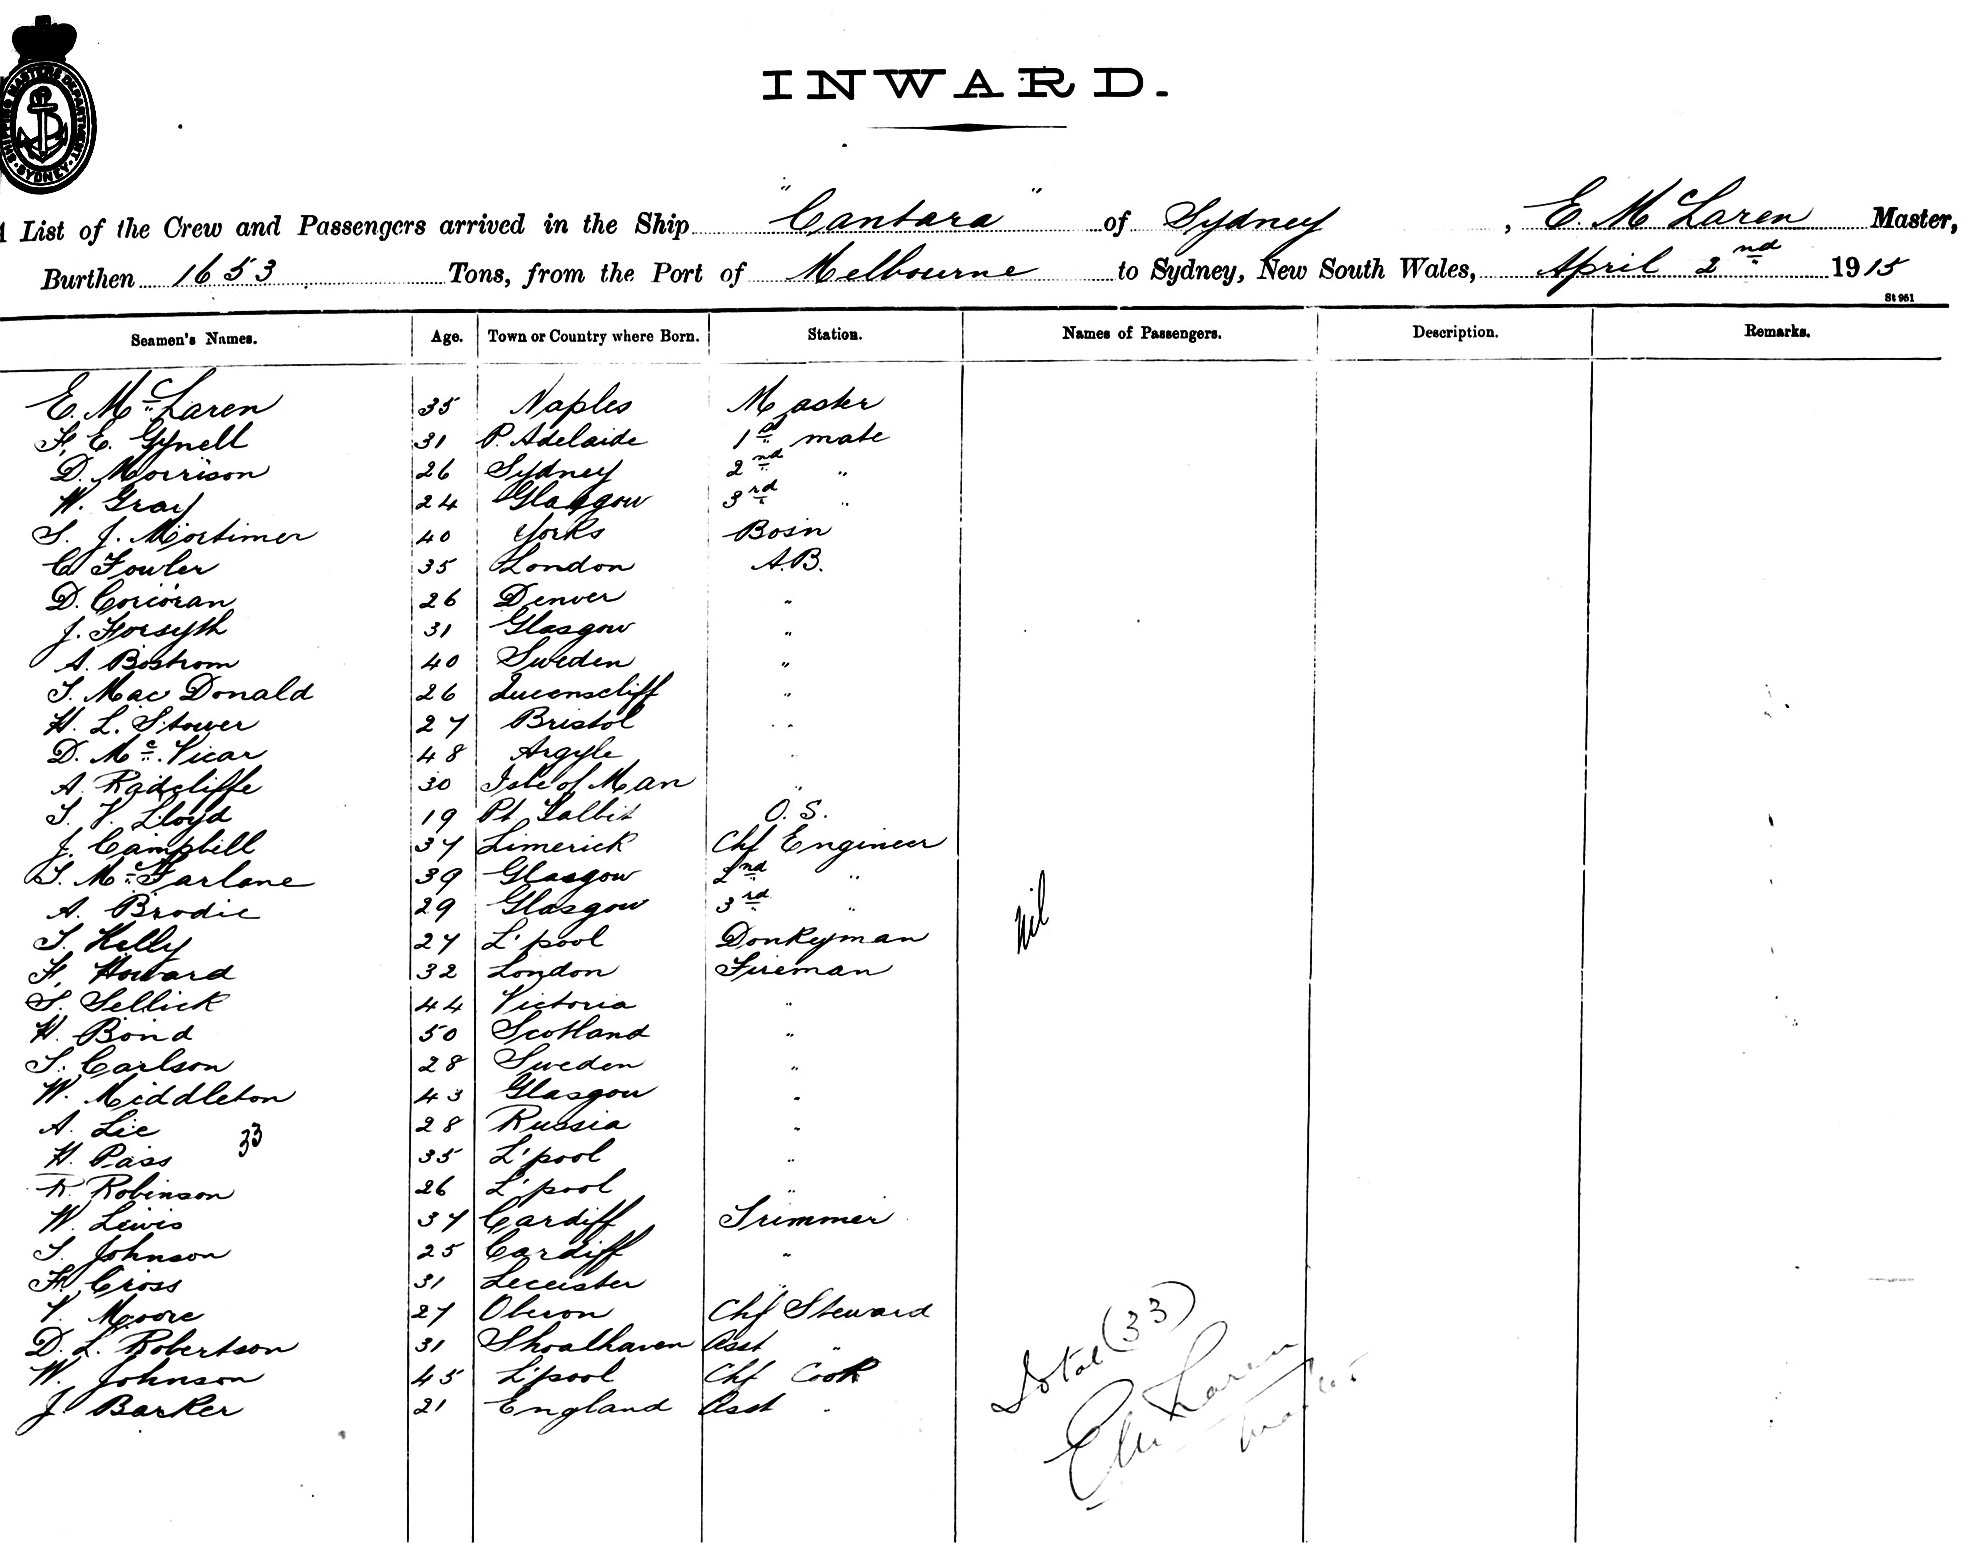 SHIPPING MASTERS DEPARTMENT · SYDNEY ·
INWARD.
A List of the Crew and Passengers arrived in the Ship "Cantara" of Sydney, E. McLaren Master,
Burthen 1653 Tons, from the Port of Melbourne to Sydney, New South Wales, April 2nd 1915
St 961
Seamen's Names. Age. Town or Country where Born. Station. Names of Passengers. Description. Remarks.
E. McLaren 35 Naples Master
F. E. Gynell 31 P. Adelaide 1st mate
D. Morrison 26 Sydney 2nd "
W. Gray 24 Glasgow 3rd "
S. J. Mortimer 40 Yorks Bosn
C. Fowler 35 London A.B.
D. Corcoran 26 Denver "
J. Forsyth 31 Glasgow "
A. Bostrom 40 Sweden "
T. MacDonald 26 Queenscliff "
H. L. Stower 27 Bristol "
D. McVicar 48 Argyle "
A. Radcliffe 30 Isle of Man "
T. V. Lloyd 19 Pt Talbit O. S.
J. Campbell 37 Limerick Chf Engineer
T. McFarlane 39 Glasgow 2nd "
A. Brodie 29 Glasgow 3rd "
nil
T. Kelly 27 L'pool Donkeyman
F. Howard 32 London Fireman
S. Sellick 44 Victoria "
H. Bond 50 Scotland "
T. Carlson 28 Sweden "
W. Middleton 43 Glasgow "
A. Lie 28 Russia "
33
H. Pass 35 L'pool "
R. Robinson 26 L'pool "
W. Lewis 37 Cardiff Trimmer
T. Johnson 25 Cardiff "
F. Cross 31 Leceister "
V. Moore 27 Oberon Chf Steward
D. L. Robertson 31 Shoalhaven Asst "
W. Johnson 45 L'pool Chf Cook
J. Barker 21 England Asst "
Total (33)
E McLaren
Master